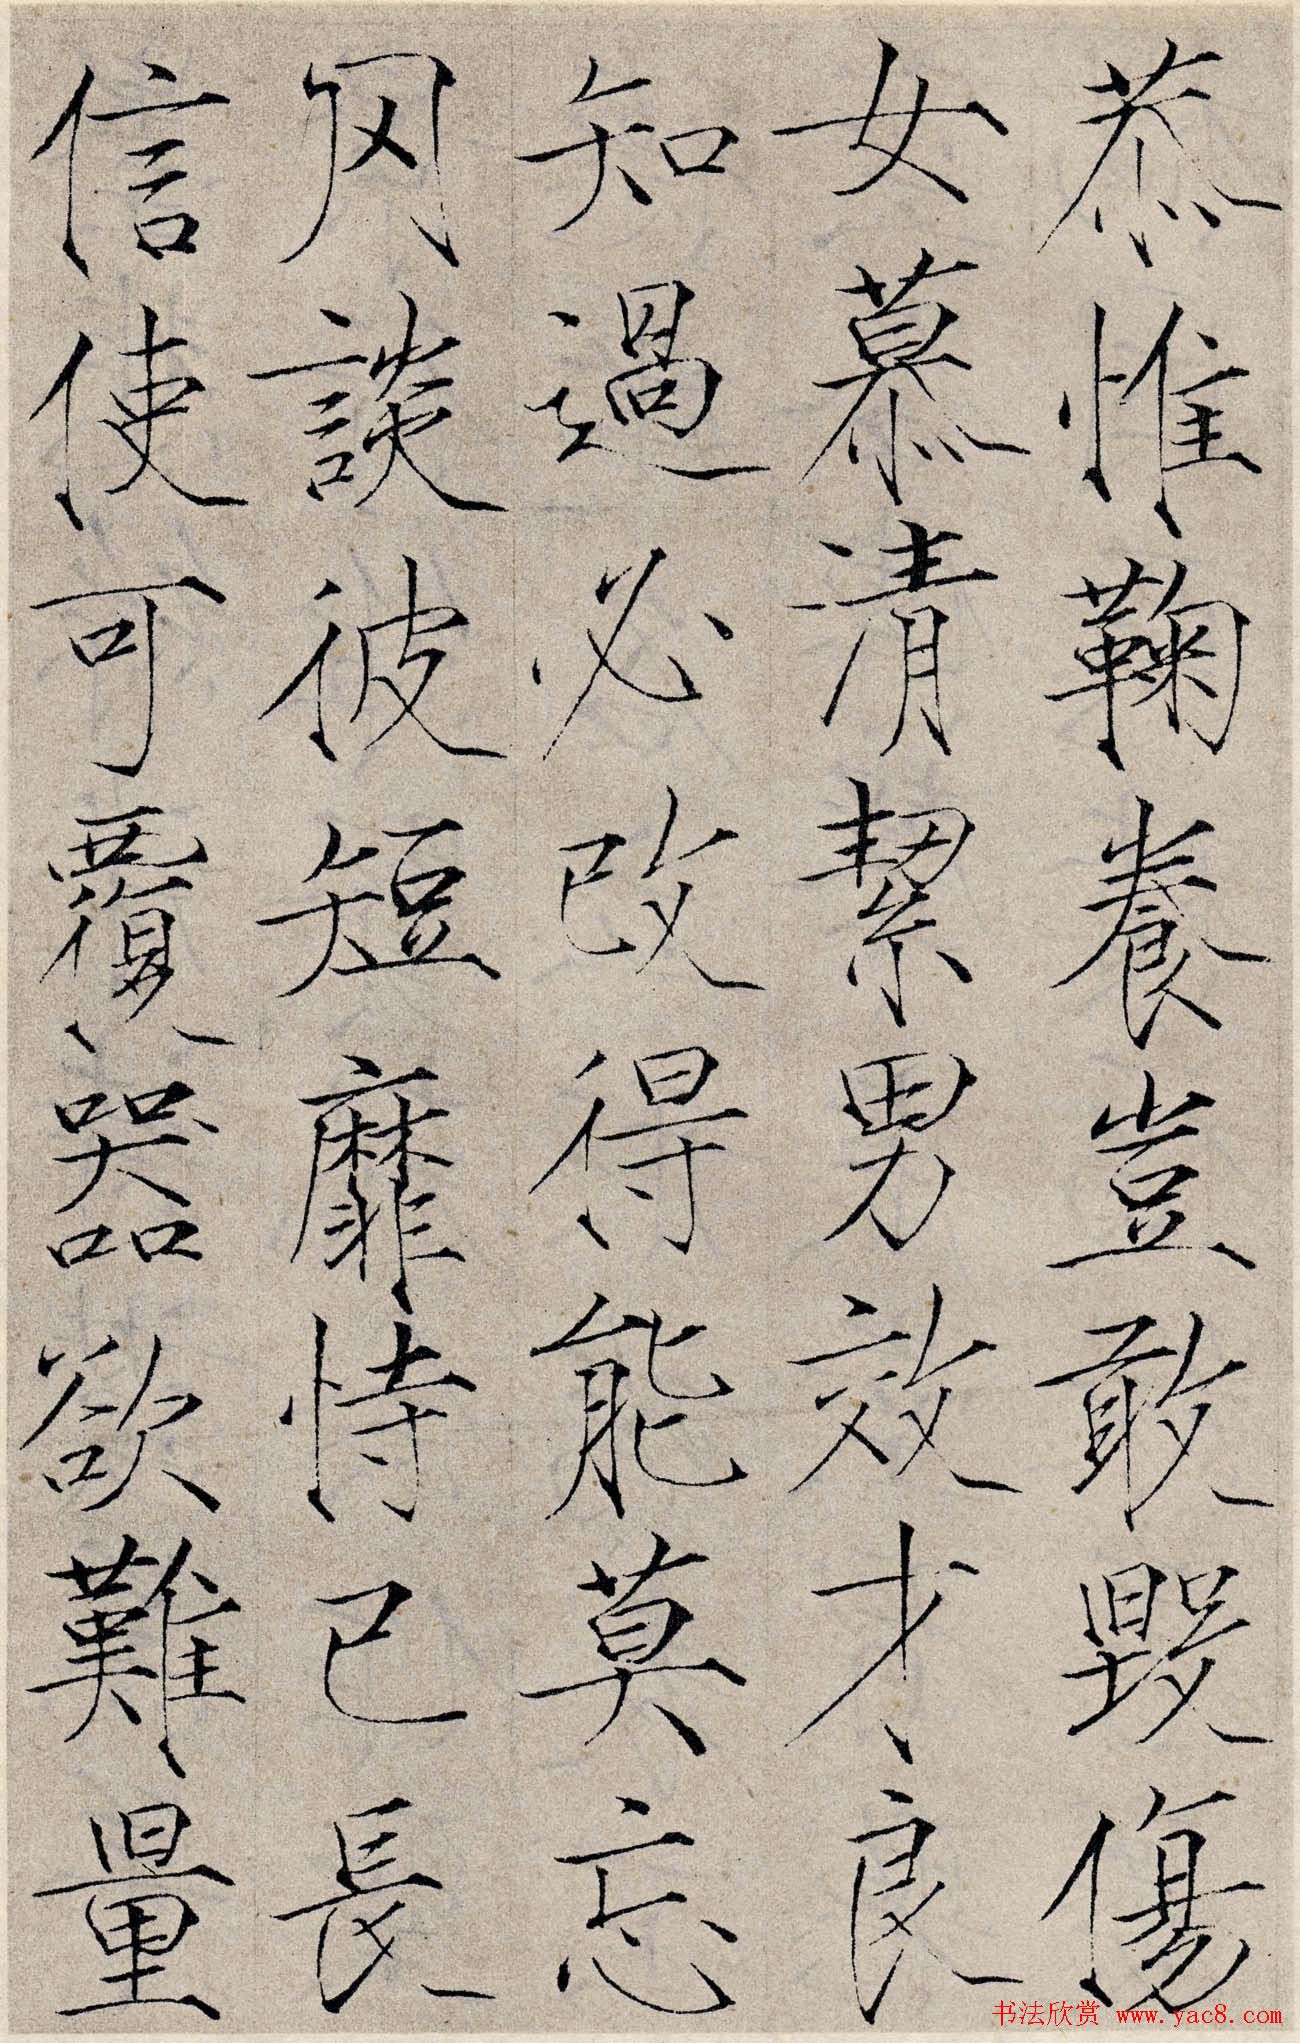 恭惟鞠養豈敢毀傷
女慕清絜男效才良
知過必改得能莫忘
罔談彼短靡恃己長
信使可覆器欲難量
书法欣赏 www.yac8.com